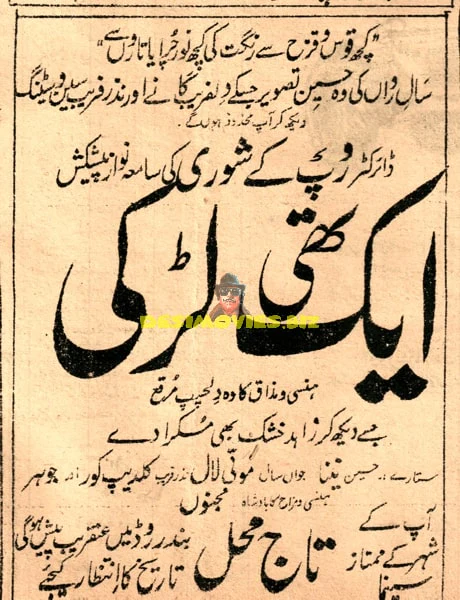 "کچھ قوس و قزح سے رنگت کی کچھ نور چرایا تاروں سے"
سال رواں کی وہ حسین تصویر جسکے دلفریب گانے اور نذر فریب سین و سیٹنگ
دیکھ کر آپ محذوذ ہوں گے۔
ڈائرکٹر روپ کے شوری کی سامعہ نواز پیشکش
ایک تھی لڑکی
DESIMOVIES.BIZ
ہنسی و مذاق کا وہ دلچسپ مرقع
جسے دیکھ کر زاہد خشک بھی مسکرا دے
ستارے :۔ حسین مینا جواں سال موتی لال نذر فریب کلدیپ کور اور
ہنسی و مزاح کا بادشاہ مجنوں جوہر
آپ کے شہر کے ممتاز سینما
تاج محل
بندر روڈ میں عنقریب پیش ہوگی
تاریخ کا انتظار کیجئے